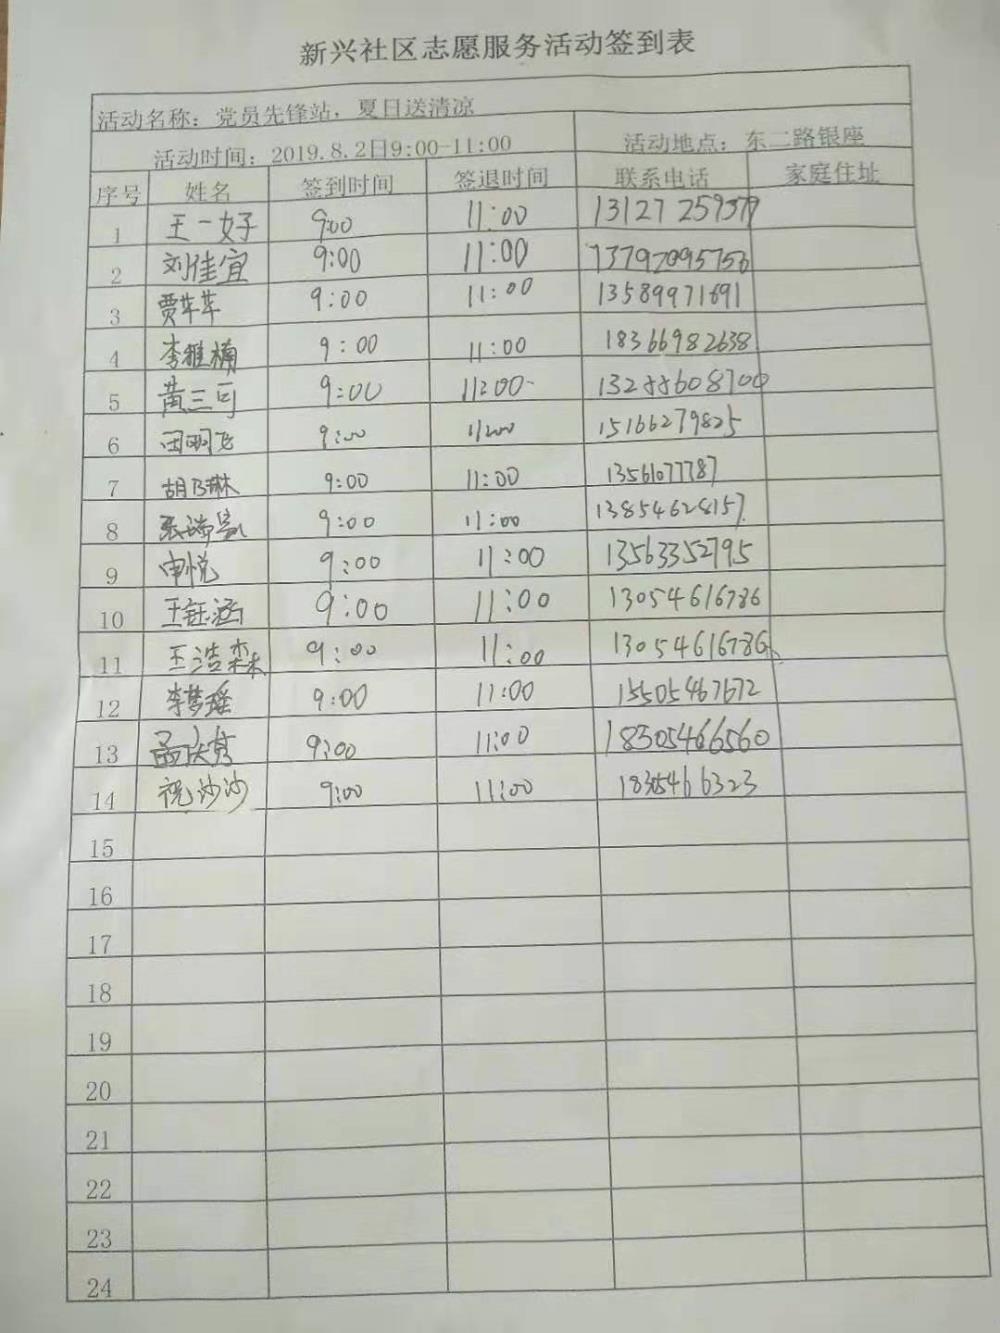 新兴社区志愿服务活动签到表
活动名称：党员先锋站，夏日送清凉
活动时间：2019.8.2日9:00-11:00 活动地点：东二路银座
序号 姓名 签到时间 签退时间 联系电话 家庭住址
1 王一好 9:00 11:00
2 刘佳宜 9:00 11:00
3 贾苹苹 9:00 11:00 13589971691
4 李雅楠 9:00 11:00 18366982638
5 黄三可 9:00 11:00
6 田明飞 9:00 11:00 15166279825
7 胡乃琳 9:00 11:00 13561077787
8 9:00 11:00 13854628157
9 申悦 9:00 11:00 13563352795
10 王钰涵 9:00 11:00 13054616786
11 王浩 9:00 11:00 13054616786
12 李梦瑶 9:00 11:00 15505467672
13 9:00 11:00 18305466560
14 祝沙沙 9:00 11:00 18305466323
15
16
17
18
19
20
21
22
23
24